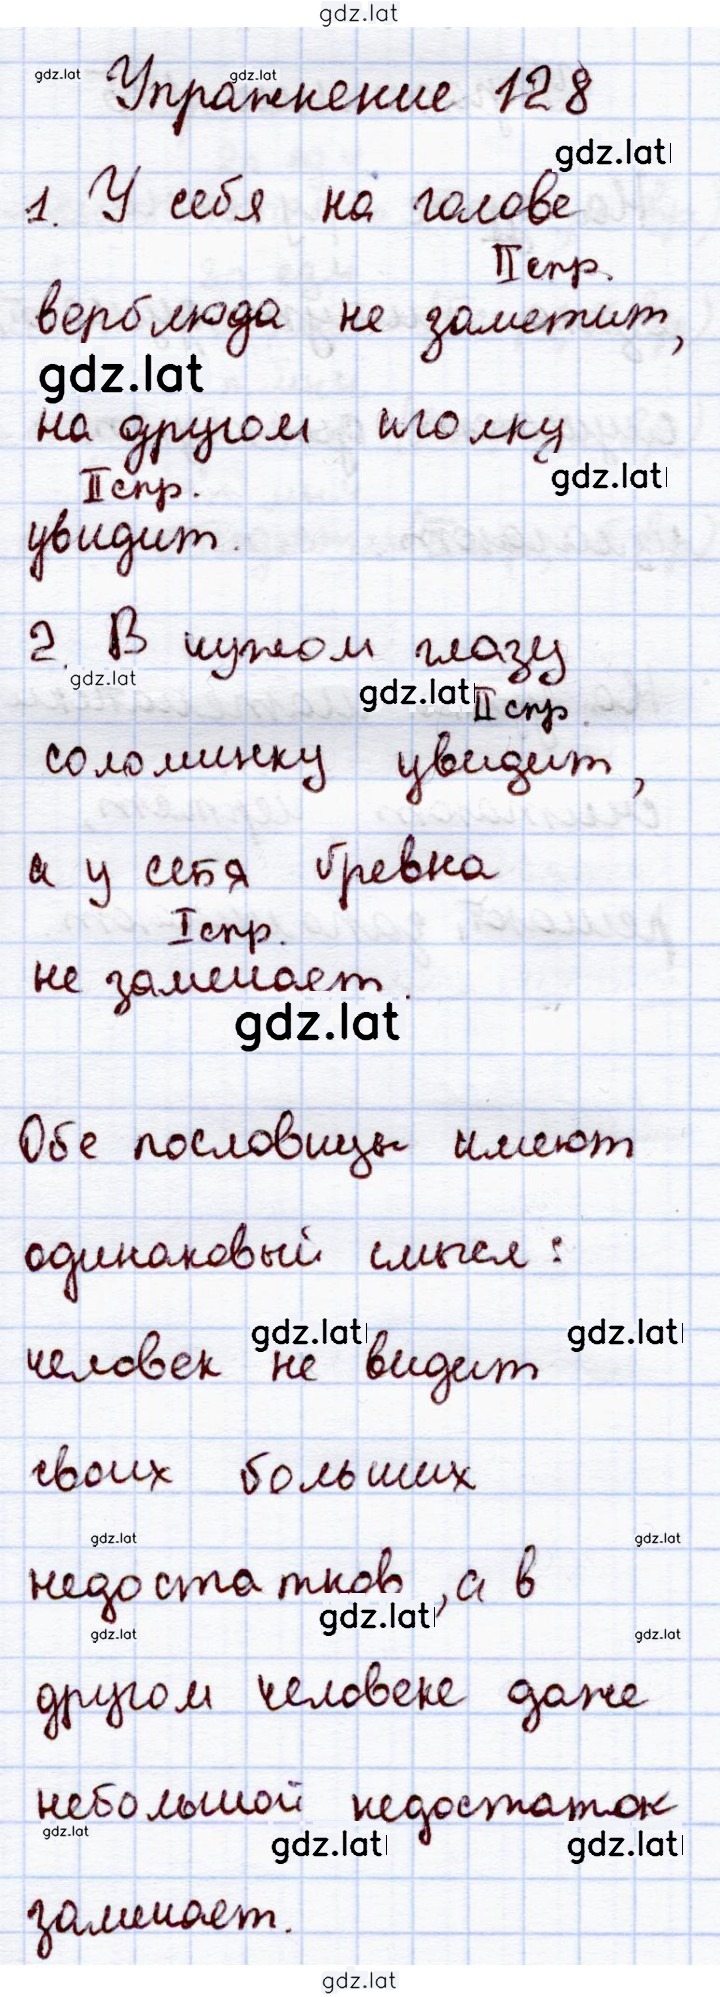 gdz.lat
gdz.lat gdz.lat
Упражнение 128
gdz.lat
1. У себя на голове
II спр.
верблюда не заметит,
gdz.lat
на другом иголку
gdz.lat
II спр.
увидит.
2. В чужом глазу
gdz.lat
gdz.lat
II спр.
соломинку увидит,
а у себя бревна
I спр.
не замечает.
gdz.lat
Обе пословицы имеют
одинаковый смысл:
gdz.lat gdz.lat
человек не видит
своих больших
gdz.lat gdz.lat
недостатков, а в
gdz.lat
gdz.lat gdz.lat
другом человеке даже
небольшой недостаток
gdz.lat
gdz.lat gdz.lat
замечает.
gdz.lat